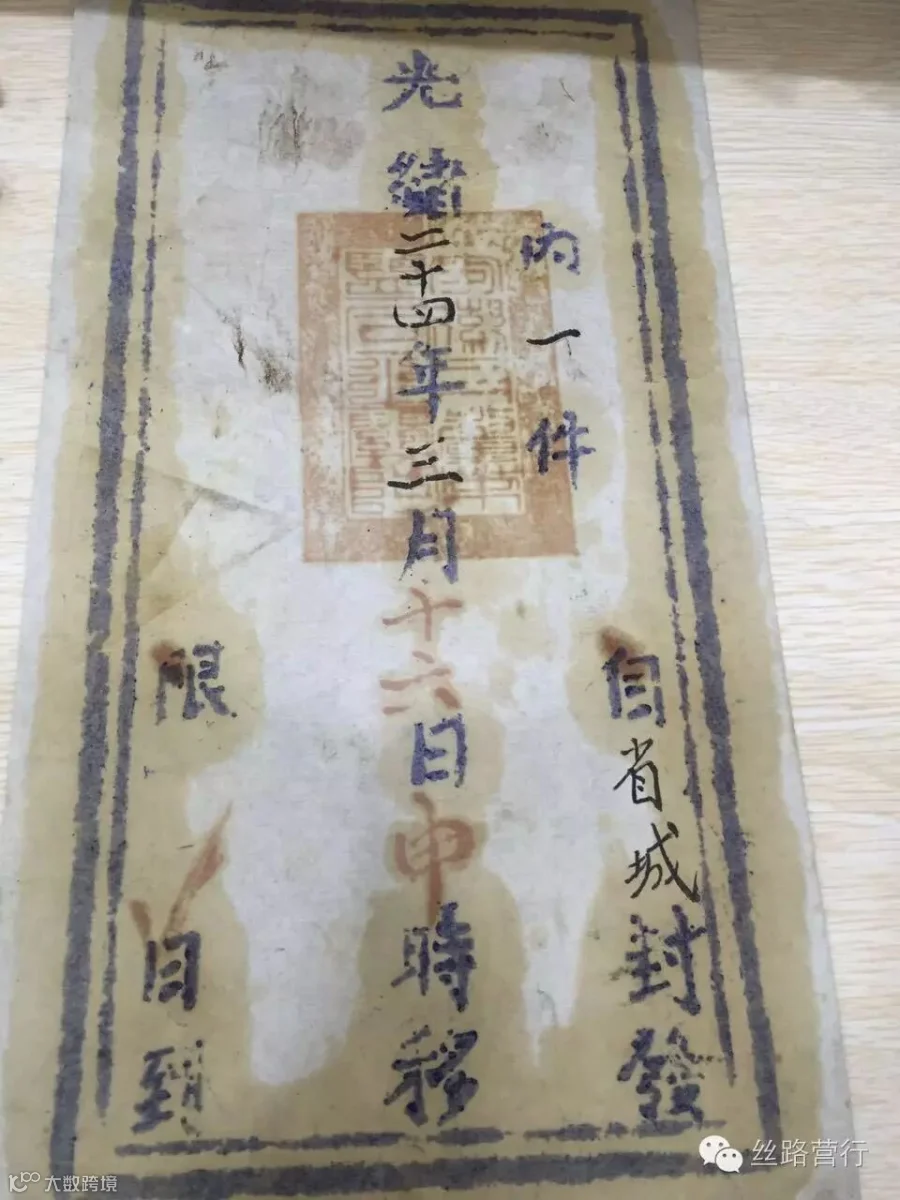 內一件
自省城封發
光緒二十四年三月十六日申時移
限
日到
丝路营行
大数跨境